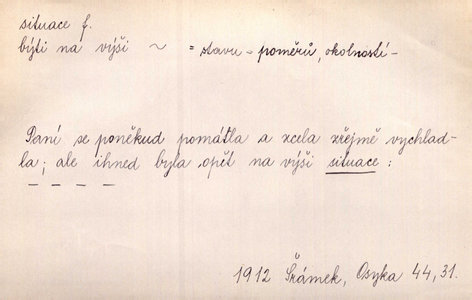 situace f.
býti na výši ~ = stavu - poměrů, okolností -
Paní se poněkud pomátla a zcela zřejmě vychlad-
la; ale ihned byla opět na výši situace:
- - - -
1912 Šrámek, Osyka 44, 31.